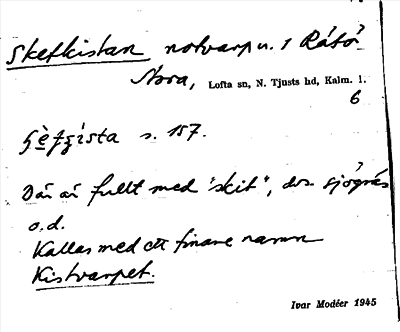 Sketkistan notvarp u. 1 Råtö
Norra, Lofta sn, N. Tjusts hd, Kalm. l.
6
s. 157.
Där är fullt med "skit", dvs. sjögräs
o.d.
Kallas med ett finare namn
Kistvarpet.
Ivar Modéer 1945